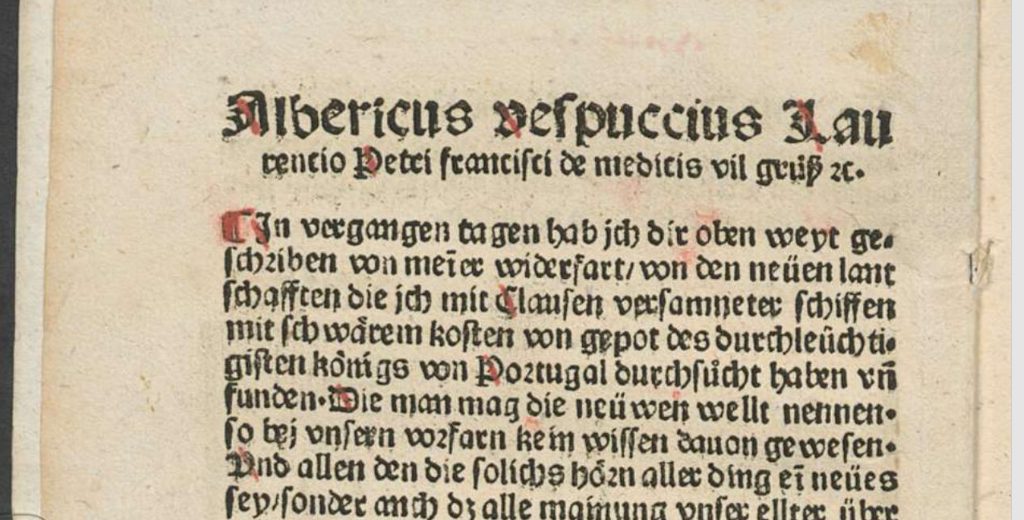 Albericus vespuccius Lau
rencio Petri francisci de medicis vil grüß ꝛc.
¶ In vergangen tagen hab jch dir oben weyt ge⸗
schriben von meīer widerfart/ von den neüen lant
schafften die jch mit Clausen versamneter schiffen
mit schwärem kosten von gepot des durchleüchti⸗
gisten königs von Portugal durchsůcht haben vn̄
funden. Die man mag die neüwen wellt nennen.
so bej vnsern vorfarn kein wissen dauon gewesen.
Vnd allen den die solichs hörn aller ding eī neües
sey/ sonder auch dz alle mainung vnser ellter über